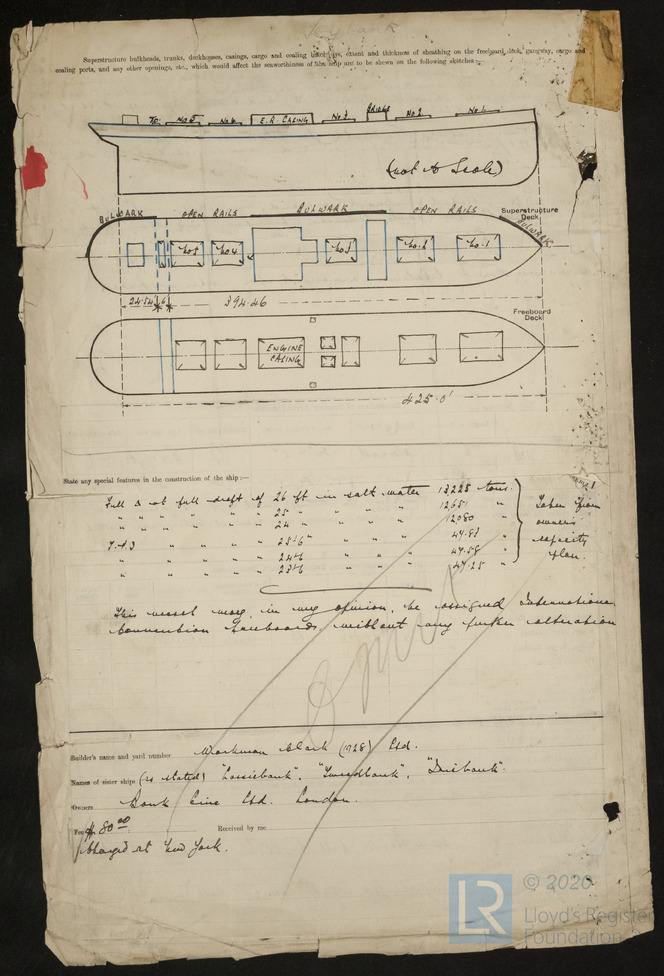 Superstructure bulkheads, trunks, deckhouses, casings, cargo and coaling hatchways, extent and thickness of sheathing on the freeboard deck, gangway, cargo and
coaling ports, and any other openings, etc., which would affect the seaworthiness of the ship are to be shown on the following sketches:—
No 5 No 4 E.R. CASING No 3 BRIDGE No 2 No 1
(not to Scale)
BULWARK OPEN RAILS BULWARK OPEN RAILS Superstructure Deck
BULWARK
No.5 No.4 No.3 No.2 No.1
24.54 6 394.46
Freeboard Deck
ENGINE
CASING
425.0'
State any special features in the construction of the ship:—
Full Δ at full draft of 26 ft in salt water 13225 tons.
" " " " " 25 " " " " 12651 " Taken from
" " " " " 24 " " " " 12080 " owners
T.P.I " " " 25'6" " " " 47.83 " capacity
" " " " 24'6 " " " 47.58 " plan.
" " " " 23'6 " " " 47.25 "
This vessel may, in my opinion, be assigned International
Convention freeboards, without any further alteration
Builder's name and yard number Workman Clark (1928) Ltd.
Names of sister ships (4 stated) "Lossiebank", "Tweedbank", "Irisbank".
Owners Bank Line Ltd. London.
Fee $ 80.00 Received by me
Charged at New York.
LR
© 2020
Lloyd's Register
Foundation